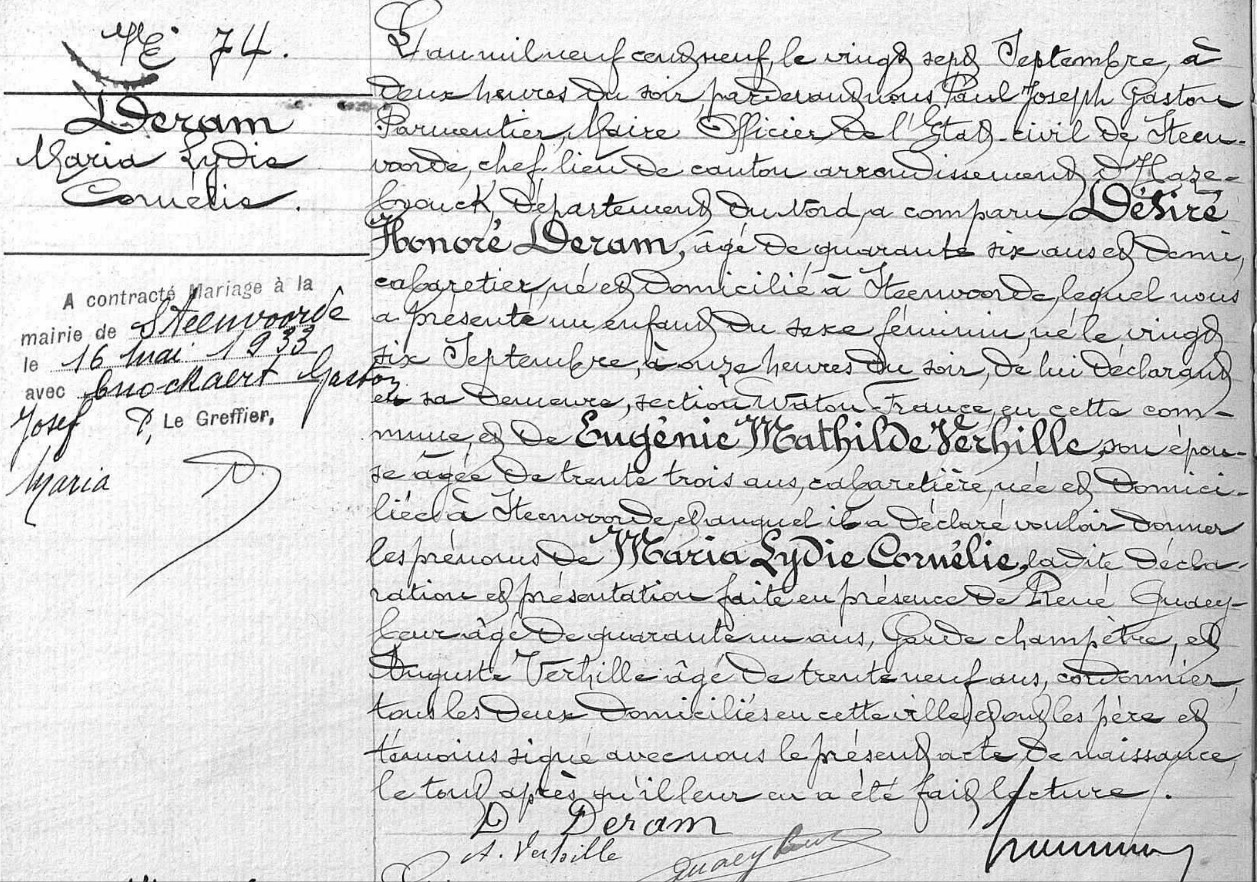 No 74.
Deram
Maria Lydie
Cornélie.
A contracté Mariage à la
mairie de Steenvoorde
le 16 mai 1933
avec Cnockaert Gaston
Josef P. Le Greffier,
Maria
L'an mil neuf cent neuf, le vingt sept Septembre, à
deux heures du soir par devant nous Paul Joseph Gaston
Parmentier, Maire Officier de l'Etat-civil de Steen-
vorde, chef lieu de canton arrondissement d'Haze-
brouck, département du Nord, a comparu Désiré
Honoré Deram, âgé de quarante six ans et demi,
cabaretier, né et domicilié à Steenvoorde, lequel nous
a présenté un enfant du sexe féminin, né le vingt
six Septembre, à onze heures du soir, de lui déclarant
en sa demeure, section Watou-France en cette com-
mune et de Eugénie Mathilde Verhille, son épou-
se âgée de trente trois ans, cabaretière, née et domici-
liée à Steenvoorde, et auquel il a déclaré vouloir donner
les prénoms de Maria Lydie Cornélie, la dite décla-
ration et présentation faite en présence de René Quaey-
beur âgé de quarante un ans, Garde champêtre, et
Auguste Verhille âgé de trente neuf ans, cordonnier,
tous les deux domiciliés en cette ville, et ont les père et
témoins signé avec nous le présent acte de naissance,
le tout après qu'il leur en a été fait lecture.
D Deram
A. Verhille
Quaeybeur